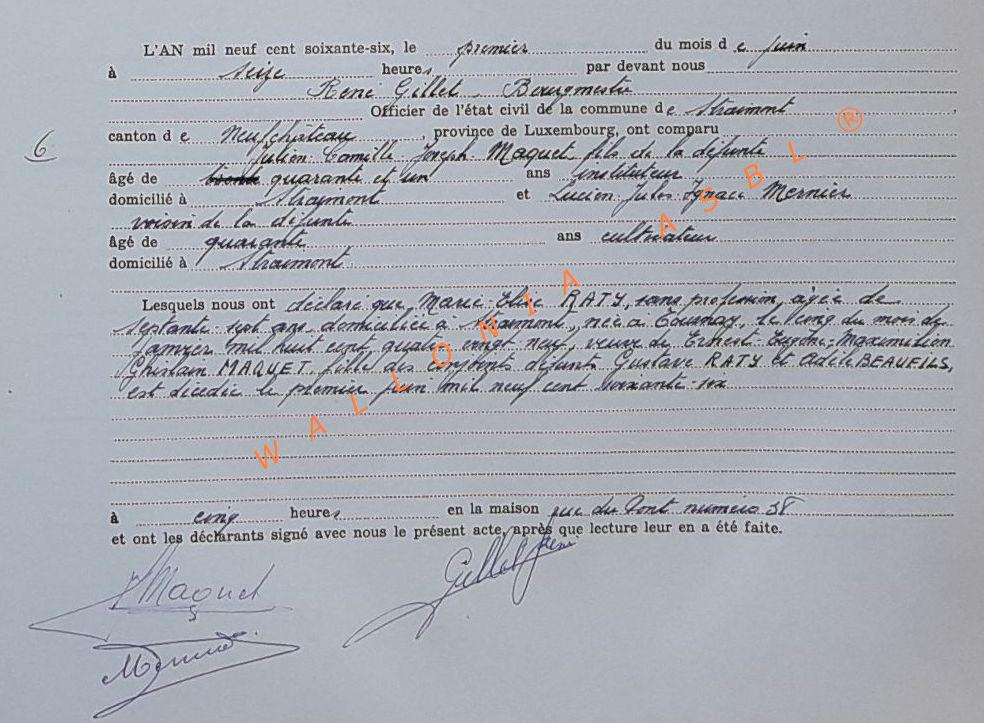 L'AN mil neuf cent soixante-six, le premier du mois d e juin
à seize heures par devant nous
René Gillet, Bourgmestre
Officier de l'état civil de la commune d e Straimont,
canton d e Neufchâteau, province de Luxembourg, ont comparu
6
Julien Camille Joseph Maquet, fils de la défunte
âgé de quarante et un ans instituteur
domicilié à Straimont et Lucien Jules Ignace Mernier
voisin de la défunte
âgé de quarante ans cultivateur
domicilié à Straimont
Lesquels nous ont déclaré que Marie Elise RATY, sans profession, âgée de
septante-sept ans domiciliée à Straimont, née à Tournay, le cinq du mois de
janvier mil huit cent quatre vingt neuf, veuve de Ernest Eugène Maximilien
Ghislain MAQUET, fille des conjoints défunts Gustave RATY et Adèle BEAUFILS,
est décédée le premier juin mil neuf cent soixante-six
à cinq heures en la maison rue du Pont numéro 38
et ont les déclarants signé avec nous le présent acte, après que lecture leur en a été faite.
Maquet
Gillet René
Mernier
WALLONIA ASBL ®